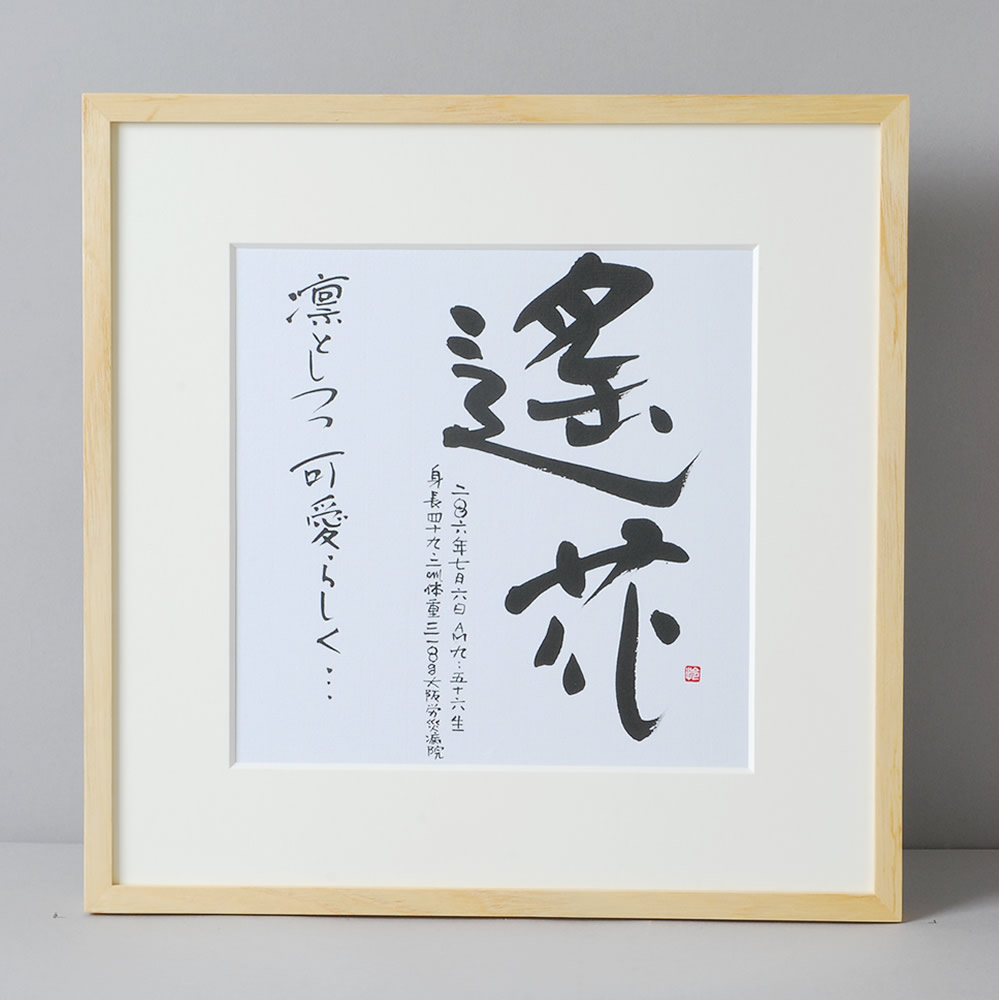 遙花
二〇〇六年七月六日AM九:五十六生
身長四十九.二cm体重三一八〇g大阪労災病院
凛としつつ可愛らしく…